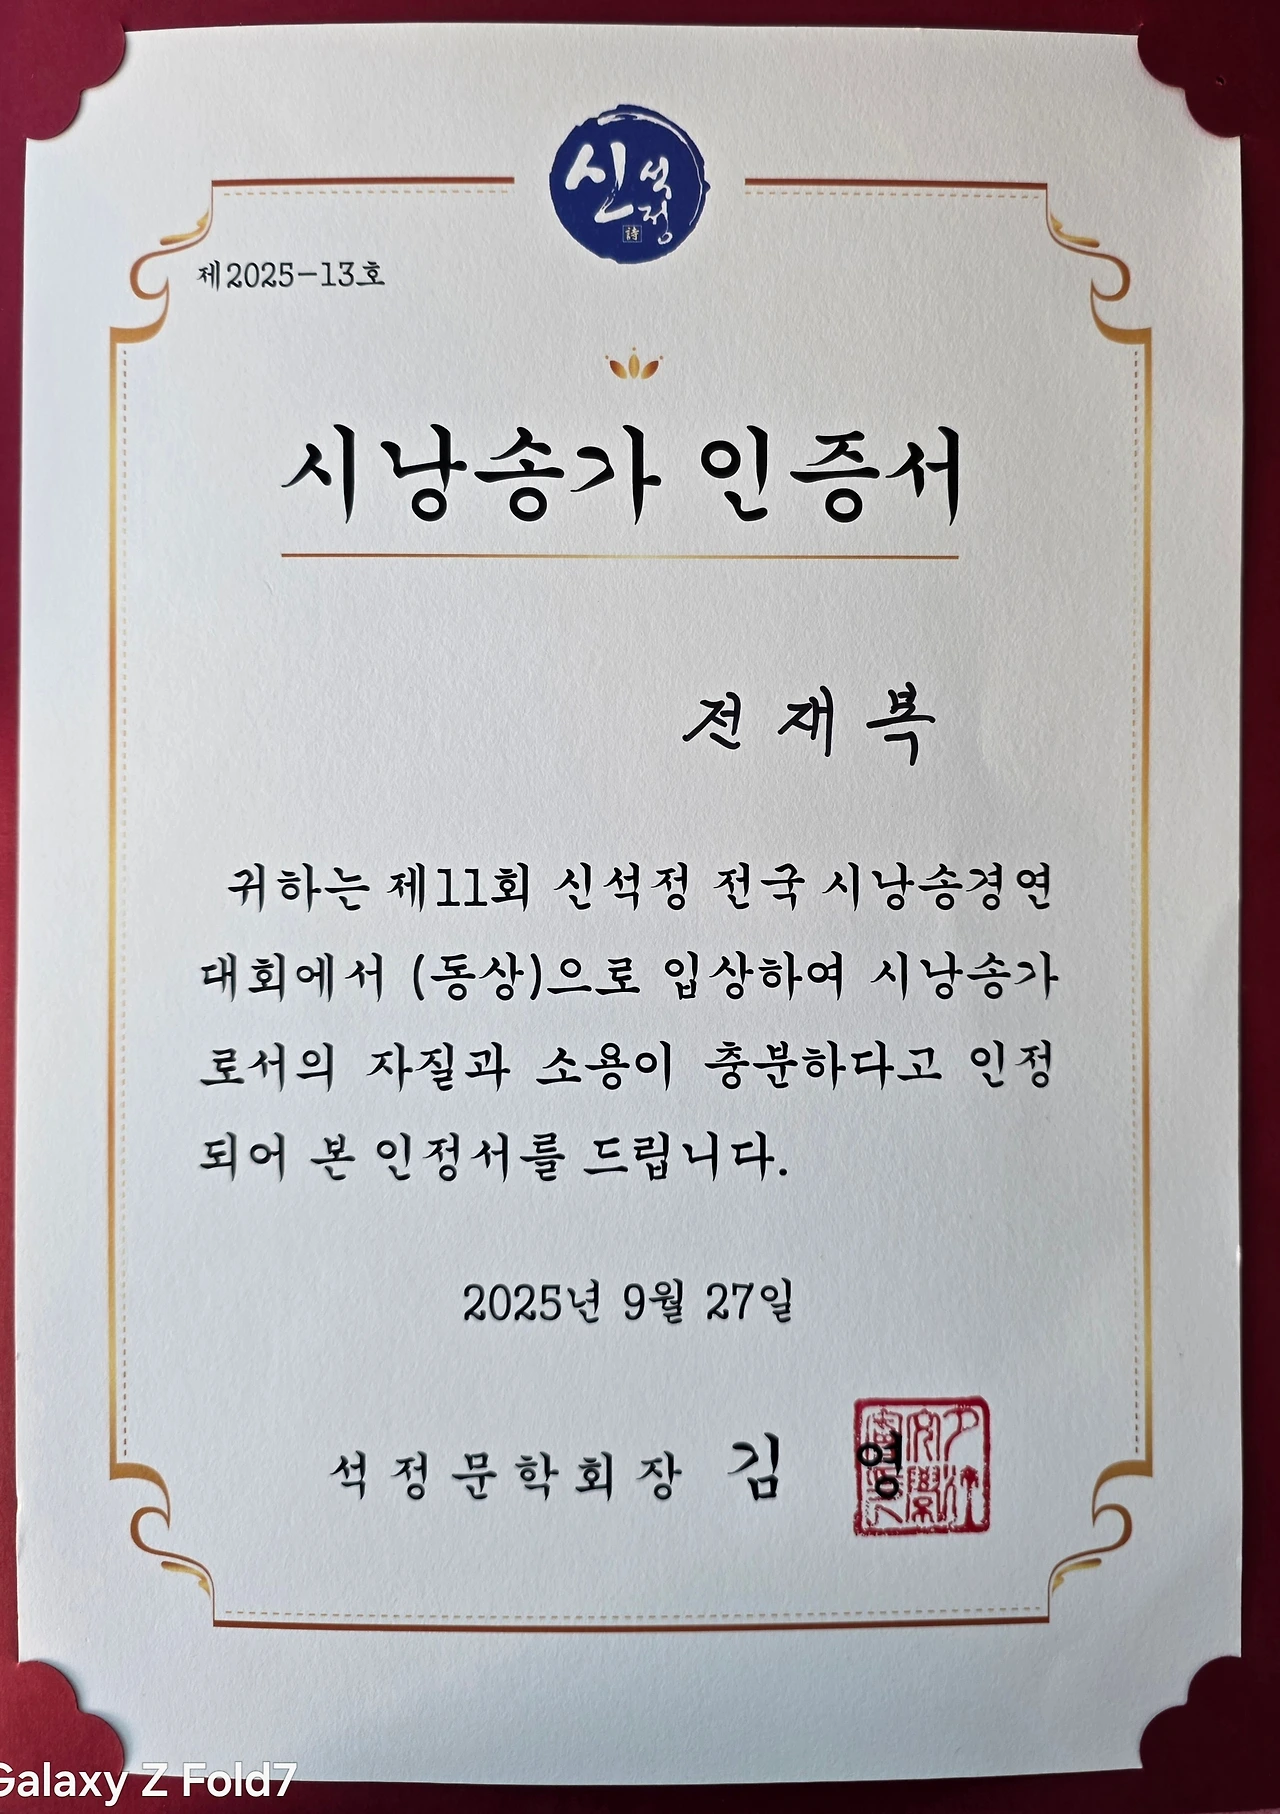 신석정
詩
제2025-13호
시낭송가 인증서
전재복
귀하는 제11회 신석정 전국 시낭송경연
대회에서 (동상)으로 입상하여 시낭송가
로서의 자질과 소용이 충분하다고 인정
되어 본 인정서를 드립니다.
2025년 9월 27일
석정문학회장 김 영
Galaxy Z Fold7